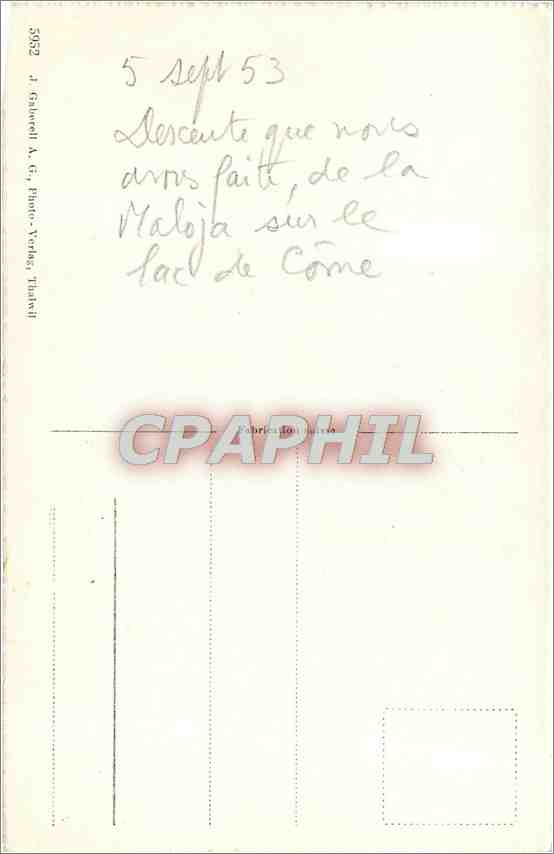 5 sept 53
Descente que nous
avons faite, de la
Maloja sur le
lac de Côme
5952 J. Gaberell A. G., Photo-Verlag, Thalwil
Fabrication suisse
CPAPHIL